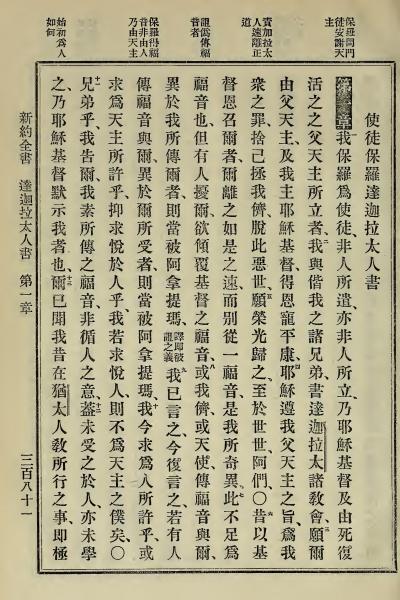 保羅問門
徒安謝天
主
責加拉太
人速離正
道
詛偽傳福
音者
保羅得福
音非由人
乃由天主
始初為人
如何
使徒保羅達迦拉太人書
第一章我保羅為使徒非人所遣亦非人所立乃耶穌基督及由死復
活之之父天主所立者二我與偕我之諸兄弟書達迦拉太諸教會三願爾
由父天主及我主耶穌基督得恩寵平康四耶穌遵我父天主之旨為我
眾之罪捨己拯我儕脫此惡世五願榮光歸之至於世世阿們〇六昔以基
督恩召爾者爾離之如是之速而別從一福音是我所奇異七此不足為
福音也但有人擾爾欲傾覆基督之福音八或我儕或天使傳福音與爾
異於我所傳爾者則當被阿拿提瑪譯即被詛之義九我已言之今復言之若有人
傳福音與爾異於爾所受者則當被阿拿提瑪十我今求為人所許乎或
求為天主所許乎抑求悅於人乎我若求悅人則不為天主之僕矣〇
十一兄弟乎我告爾我素所傳之福音非循人之意十二蓋未受之於人亦未學
之乃耶穌基督默示我者也十三爾已聞我昔在猶太人教所行之事即極
新約全書 達迦拉太人書 第一章 三百八十一